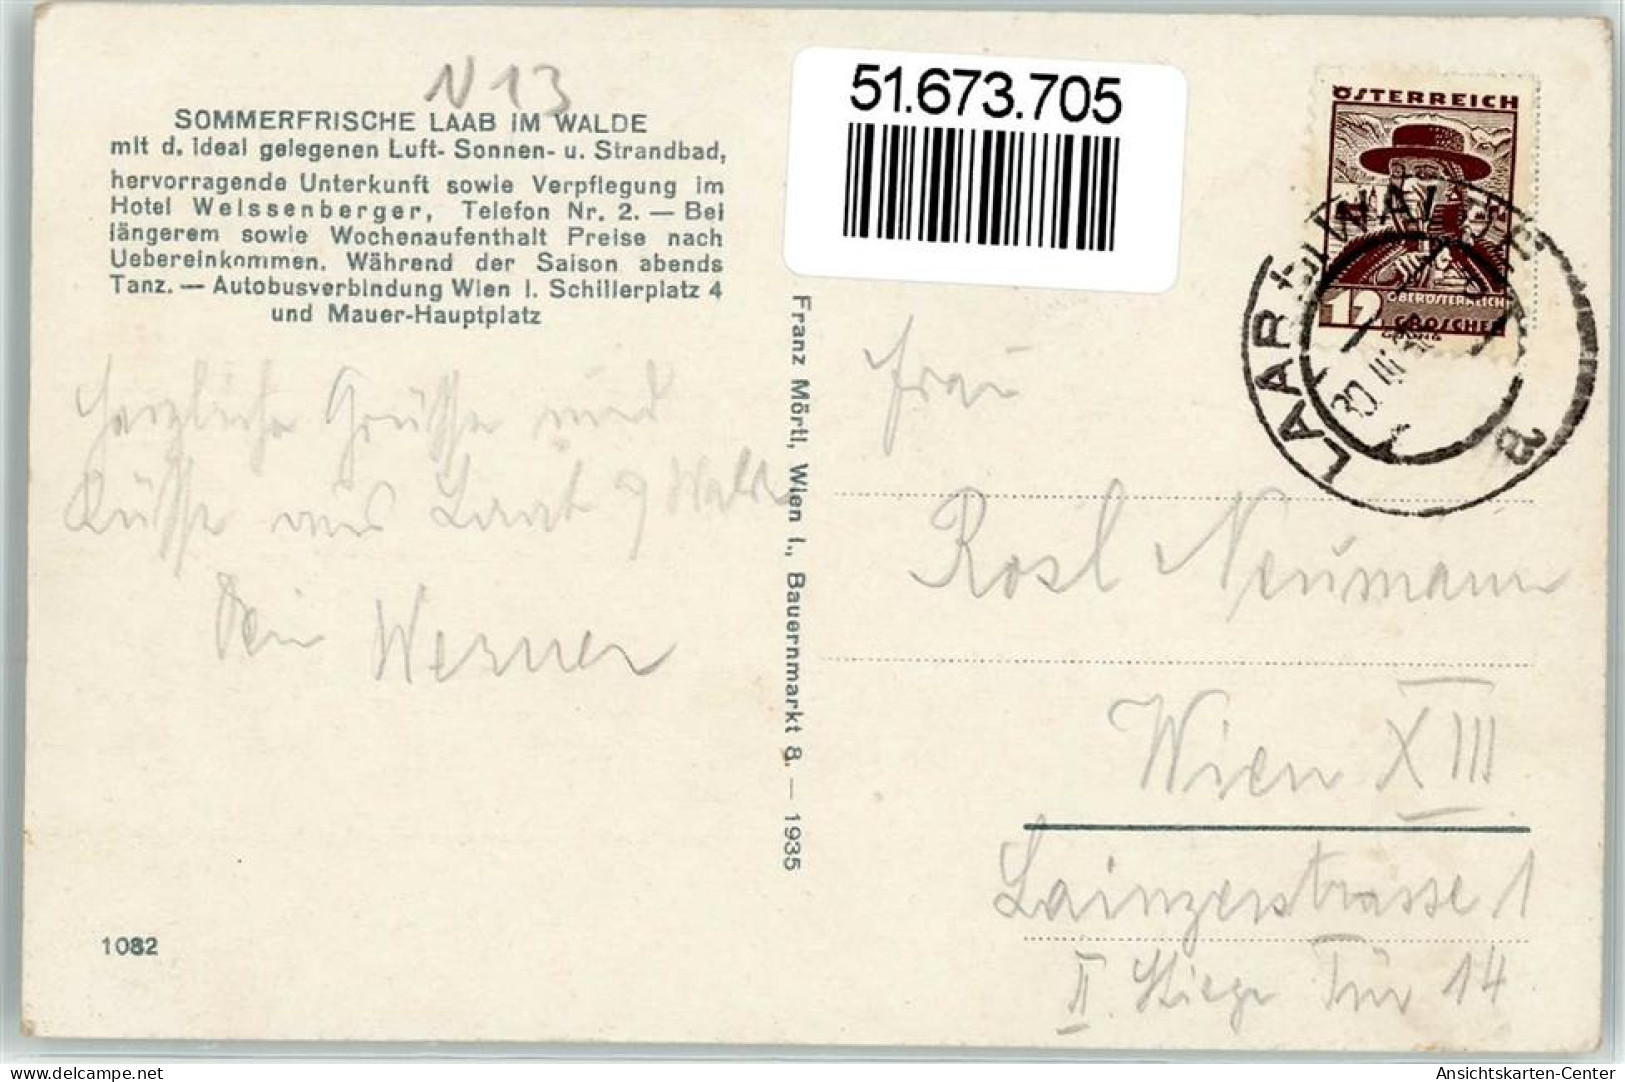 N 13
SOMMERFRISCHE LAAB IM WALDE
mit d. ideal gelegenen Luft- Sonnen- u. Strandbad,
hervorragende Unterkunft sowie Verpflegung im
Hotel Weissenberger, Telefon Nr. 2. — Bei
längerem sowie Wochenaufenthalt Preise nach
Uebereinkommen. Während der Saison abends
Tanz. — Autobusverbindung Wien I. Schillerplatz 4
und Mauer-Hauptplatz
Herzliche Grüsse und
Küsse aus Laab Walde
Dein Werner
1082
Franz Mörtl, Wien I., Bauernmarkt 8. — 1935
51.673.705
ÖSTERREICH
OBERÖSTERREICH
12 GROSCHEN
LAAB WALDE
30. III
a
Frau
Rosl Neumann
Wien XIII
Lainzerstrasse 1
II. Stiege Tür 14
oldthing.de
Ansichtskarten-Center